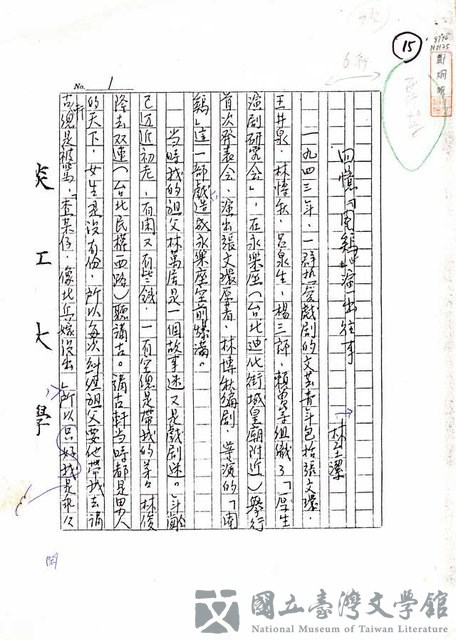 15
No. 1
回憶「閹鷄」演出往事
林至潔
一九四三年,一群热爱戲剧的文艺青年包括張文環、
王井泉、林博秋、呂泉生、楊三郎、賴 等組織了「厚生
演剧研究会」,在永樂座(台北迪化街城皇廟附近)舉行
首次發表会,演出張文環原著,林博秋編剧、導演的「閹
鷄」這一部戲造成永樂座空前爆滿。
當時我的祖父林萬居是一個故事迷又是戲剧迷。年齡
已近初老,有閑又有些錢,一有空總是帶我的弟弟林俊
隆去双連(台北民權西路)聽講古。講古軒当時都是男人
的天下,女生是沒有份,所以每次糾纏祖父要他帶我去講
古 總是被罵,「查某仔,像北兵嫁沒出」所以只好我是永久
淡江大學
國立臺灣文學館
National Museum of Taiwan Literature